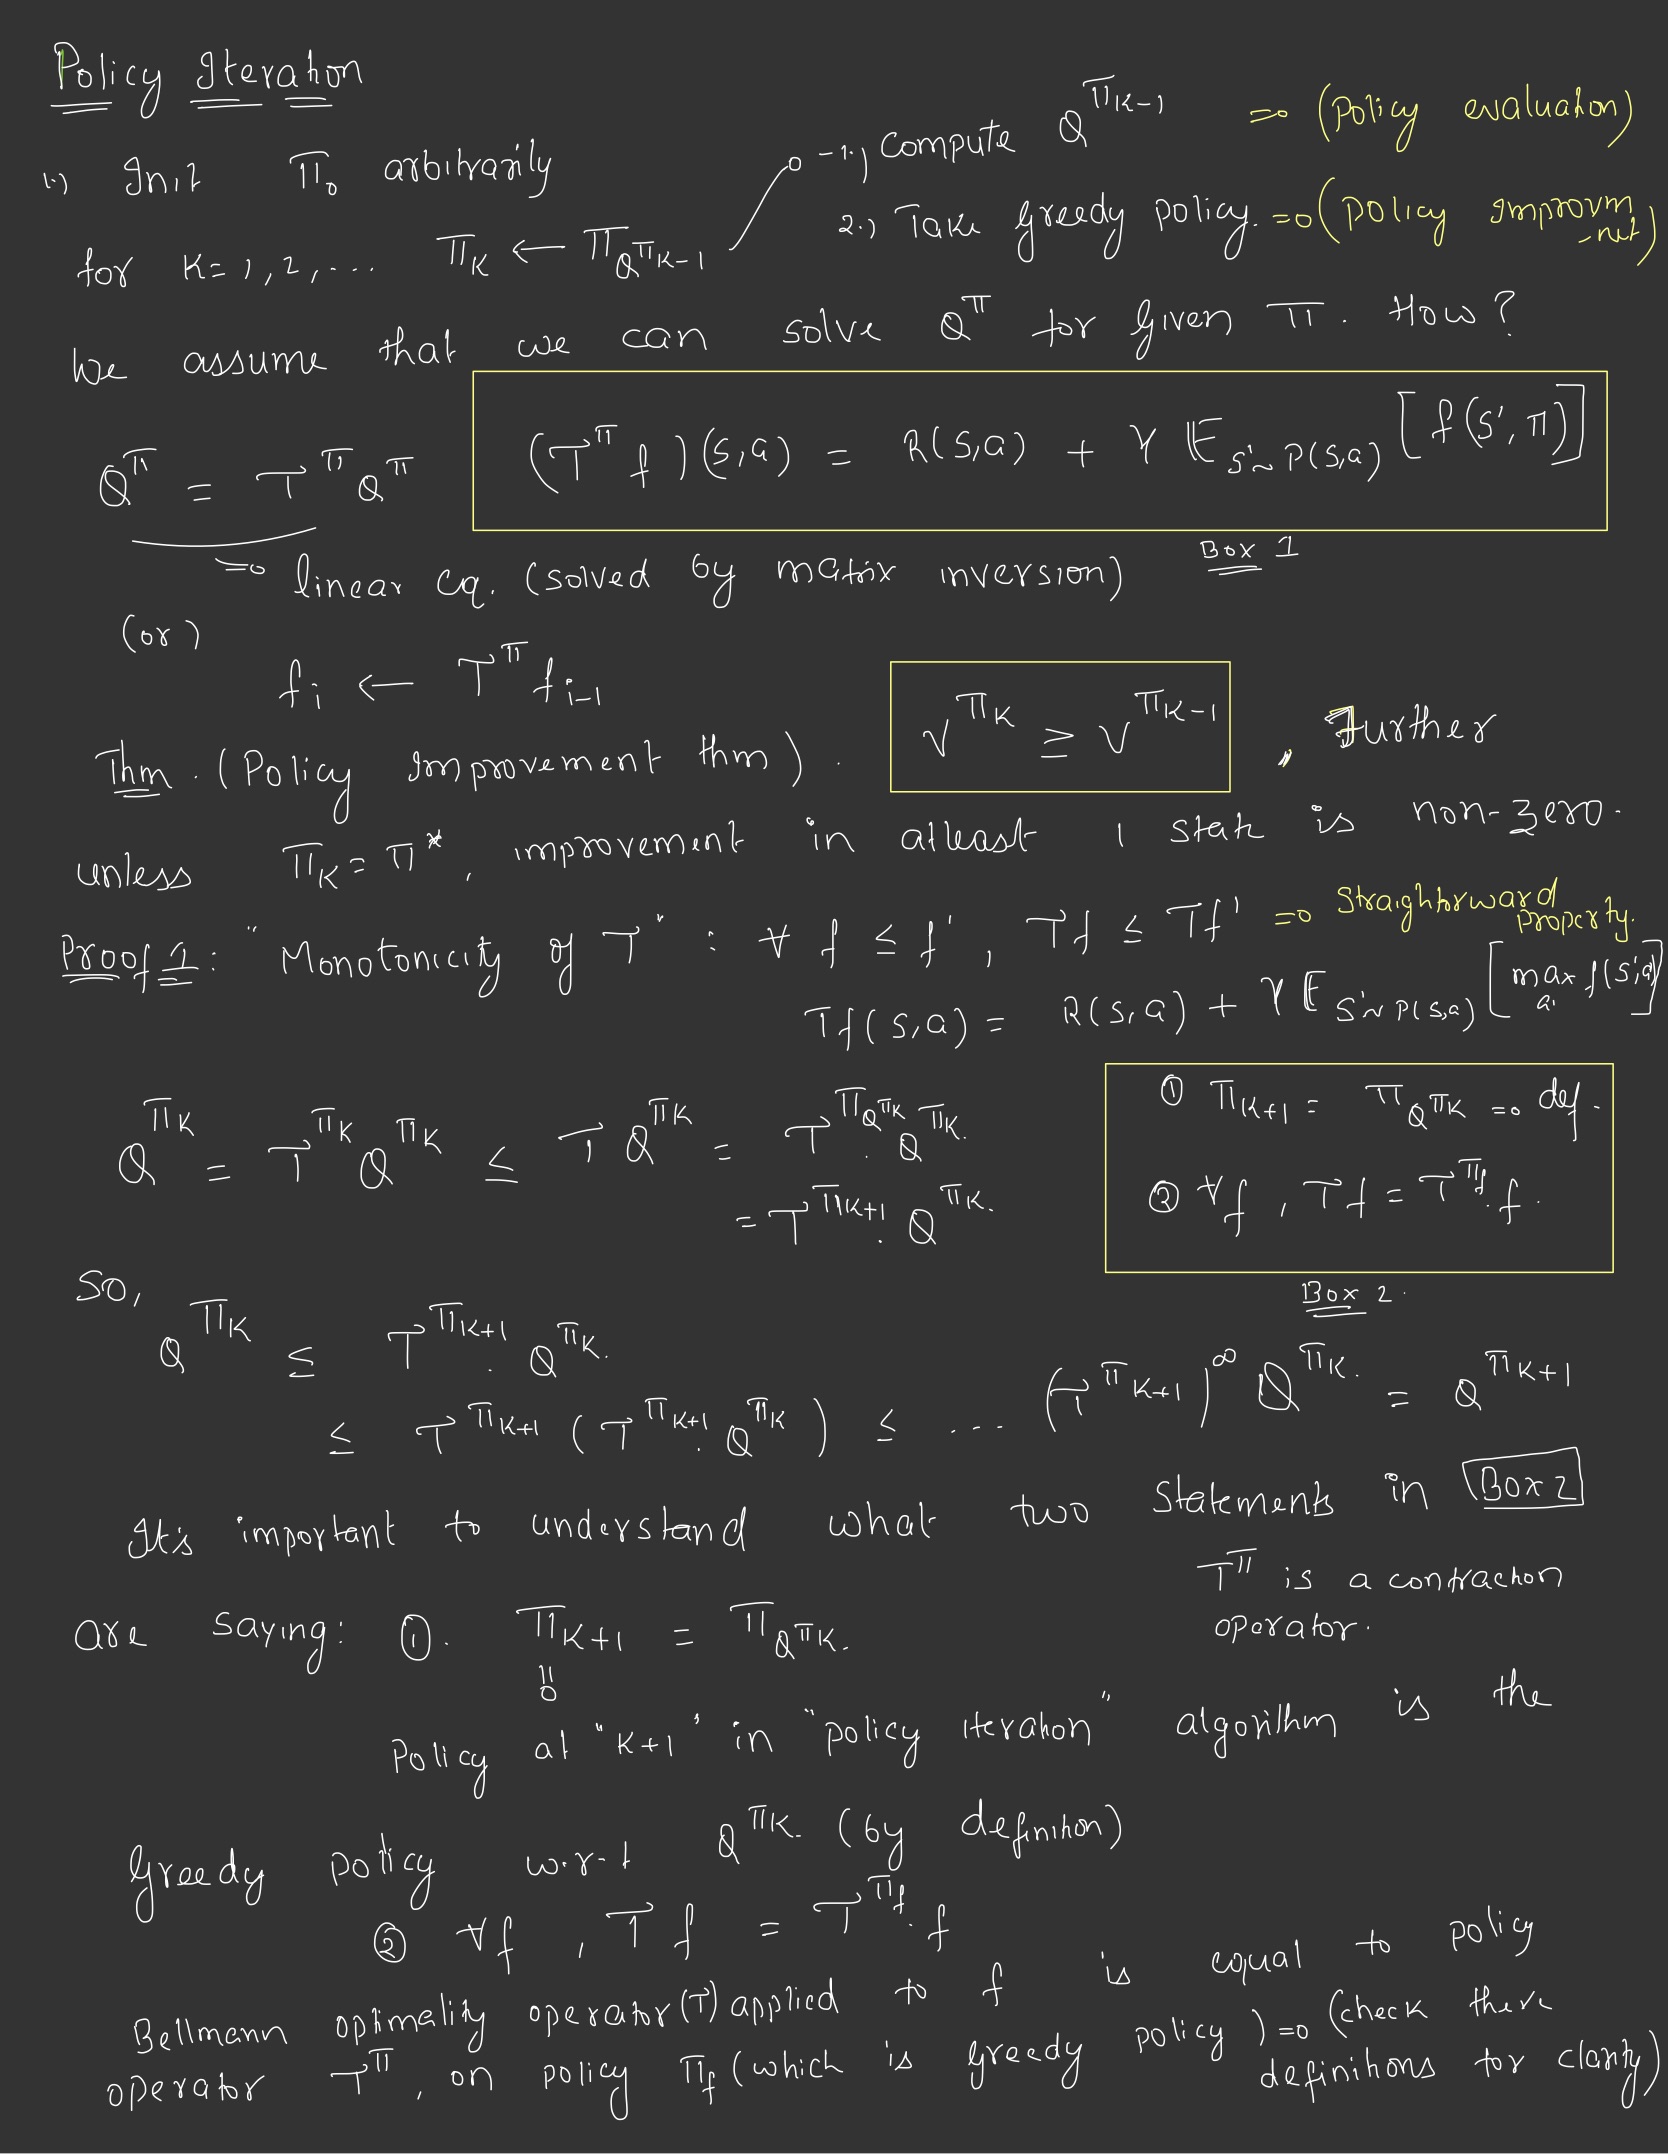 Policy Iteration
1.) Init π₀ arbitrarily
for K=1,2,... π_K ← π_{Q^{π_{K-1}}}
-1.) Compute Q^{π_{K-1}} ⇒ (Policy evaluation)
2.) Take Greedy policy. ⇒ (Policy Improvm-net)
We assume that we can solve Q^π for Given π. How?
Q^π = T^π Q^π
(T^π f)(s,a) = R(s,a) + γ E_{s'~P(s,a)} [f(s',π)]
Box 1
⇒ linear eq. (solved by matrix inversion)
(or)
f_i ← T^π f_{i-1}
Thm. (Policy Improvement thm). V^{π_K} ≥ V^{π_{K-1}}, Further
unless π_K = π*, improvement in atleast 1 state is non-zero.
Proof 1: "Monotonicity of T" : ∀ f ≤ f', Tf ≤ Tf' ⇒ Straightforward property.
Tf(s,a) = R(s,a) + γ E_{s'~P(s,a)} [max_{a'} f(s',a')]
Q^{π_K} = T^{π_K} Q^{π_K} ≤ T Q^{π_K} = T^{π_{Q^{π_K}}} Q^{π_K}.
= T^{π_{K+1}} Q^{π_K}.
① π_{K+1} = π_{Q^{π_K}} ⇒ def.
② ∀f, Tf = T^{π_f} f.
Box 2.
So,
Q^{π_K} ≤ T^{π_{K+1}} Q^{π_K}.
≤ T^{π_{K+1}} (T^{π_{K+1}} Q^{π_K}) ≤ ... (T^{π_{K+1}})^∞ Q^{π_K} = Q^{π_{K+1}}
It's important to understand what two statements in Box 2
T^π is a contraction
operator.
are saying: ①. π_{K+1} = π_{Q^{π_K}}.
⇓
Policy at "K+1" in "policy iteration" algorithm is the
Greedy policy w.r.t Q^{π_K} (by definition)
② ∀f, Tf = T^{π_f} f
Bellmann optimality operator (T) applied to f is equal to policy
operator T^π, on policy π_f (which is greedy policy) ⇒ (check there
definitions for clarity)